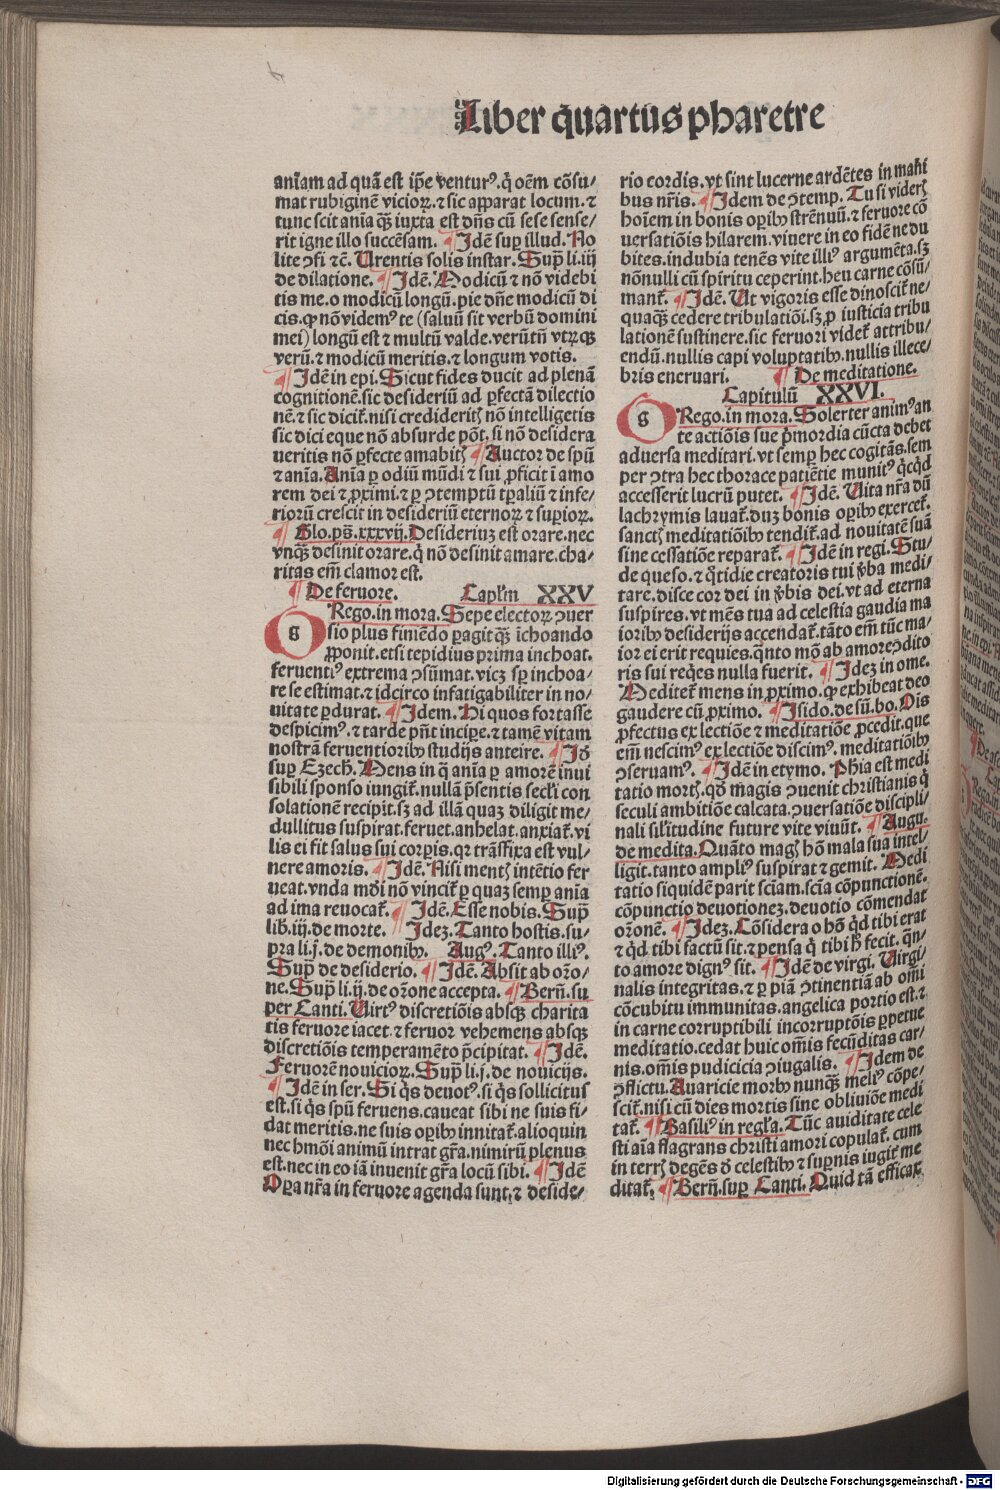 Liber q̄uartus pharetre
aniam ad quā est ip̄e venturꝰ.q̇ oēm cōsu/
mat rubiginē vicioꝝ.⁊ sic apparat locum.⁊
tunc scit anīa qꝫ iuxta est dn̄s cū sese sense/
rit igne illo succēsam. ¶ Jdē suꝑ illud. No
lite ɔ̄fi ⁊c̄. Urentis solis instar. Sup̄ li.iij
de dilatione. ¶ Jdē. Modicū ⁊ nō videbi
tis me.o modicū longū.pie dn̄e modicū di
cis.qͦ nō videmꝰ te (saluū sit verbū domini
mei) longū est ⁊ multū valde.verūtn̄ vtꝝqꝫ
verū.⁊ modicū meritis.⁊ longum votis.
¶ Jdē in epi. Sicut fides ducit ad plenā
cognitionē.sic desideriū ad ꝑfectā dilectio
nē.⁊ sic dicit̄.nisi crediderit̄ꝫ nō intelligetis
sic dici eque nō absurde pōt.si nō desidera
ueritis nō ꝑfecte amabitꝫ ¶ Auctor de spū
⁊ anīa. Anīa ꝑ odiū mūdi ⁊ sui ꝓficit ī amo
rem dei ⁊ ꝓximi.⁊ ꝑ ɔtemptū tꝑaliū ⁊ infe/
rioꝝ crescit in desideriū eternoꝝ ⁊ suꝑioꝝ.
¶ Glo.ps̄.xxxvij. Desideriuꝫ est orare.nec
vnqꝫ desinit orare.q̇ nō desinit amare.cha/
ritas em̄ clamor est.
¶ De feruore. Caplm̄ XXV
g Rego.in mora. Sepe electoꝝ ɔuer
sio plus finiēdo ꝑagit qꝫ ichoando
ꝓponit.etsi tepidius prima inchoat.
feruentiꝰ extrema ɔsūmat.vicꝫ sꝑ inchoa/
re se estimat.⁊ idcirco infatigabiliter in no/
uitate ꝑdurat. ¶ Jdem. Hi quos fortasse
despicimꝰ.⁊ tarde pn̄t incipe.⁊ tamē vitam
nostrā feruentioribꝫ studijs anteire. ¶ Jdē
suꝑ Ezech. Mens in q̄ anīa ꝑ amorē inui
sibili sponso iungit̄.nullā p̄sentis secli con
solationē recipit.sꝫ ad illā quaꝫ diligit me/
dullitus suspirat.feruet.anhelat.anxiat̄.vi
lis ei fit salus sui corꝑis.qr trāsfixa est vul/
nere amoris. ¶ Jdē. Nisi mentꝫ intētio fer
ueat.vnda mūdi nō vincit̄ ꝑ quaꝫ semꝑ anīa
ad ima reuocat̄. ¶ Jdē. Esse nobis. Sup̄
lib.iij.de morte. ¶ Jdeꝫ. Tanto hostis.su/
pra li.j.de demonibꝫ. Augꝰ. Tanto illiꝰ.
Sup̄ de desiderio. ¶ Jdē. Absit ab or̄o/
ne. Sup̄ li.ij.de or̄one accepta. ¶ Bern̄.su
per Canti. Uirtꝰ discretiōis absqꝫ charita
tis feruore iacet.⁊ feruor vehemens absqꝫ
discretiōis temperamēto p̄cipitat. ¶ Jdē.
Feruorē nouicioꝝ. Sup̄ li.j.de nouicijs.
¶ Jdē in ser. Si q̇s deuotꝰ.si q̇s sollicitus
est.si q̇s spū feruens.caueat sibi ne suis fi/
dat meritis.ne suis oꝑibꝫ innitat̄.alioquin
nec hmōi animū intrat gr̄a.nimirū plenus
est.nec in eo iā inuenit gr̄a locū sibi. ¶ Jdē
Oꝑa nr̄a in feruore agenda sunt.⁊ deside/
rio cordis.vt sint lucerne ardētes in mani
bus nr̄is. ¶ Jdem de ɔtemp. Tu si viderꝫ
hoīem in bonis oꝑibꝫ strēnuū.⁊ feruore cō
uersatiōis hilarem.viuere in eo fidē ne du
bites.indubia tenēs vite illiꝰ argumēta.sꝫ
nōnulli cū spiritu ceperint.heu carne cōsū/
mant̄. ¶ Jdē. Ut vigoris esse dinoscit̄ ne/
quaqꝫ cedere tribulatiōi.sꝫ ꝓ iusticia tribu
lationē sustinere.sic feruori videt̄ attribu/
endū.nullis capi voluptatibꝫ.nullis illece/
bris eneruari. ¶ De meditatione.
Capitulū XXVI.
g Rego.in mora. Solerter animꝰ an
te actiōis sue p̄mordia cūcta debet
aduersa meditari.vt semꝑ hec cogitās.sem
per ɔtra hec thorace patiētie munitꝰ q̇cqd
accesserit lucrū putet. ¶ Jdē. Uita nr̄a dū
lachrymis lauat̄.duꝫ bonis oꝑibꝫ exercet̄.
sanctꝫ meditatiōibꝫ tendit̄.ad nouitatē suā
sine cessatiōe reparat̄. ¶ Jdē in regi. Stu/
de queso.⁊ q̇tidie creatoris tui v̄ba medi/
tare.disce cor dei in v̄bis dei.vt ad eterna
suspires.vt mēs tua ad celestia gaudia ma
ioribꝫ desiderijs accendat̄.tāto em̄ tūc ma/
ior ei erit requies.q̄nto mō ab amore ɔdito
ris sui req̇es nulla fuerit. ¶ Jdeꝫ in ome.
Meditet̄ mens in ꝓximo.qͦ exhibeat deo
gaudere cū ꝓximo. ¶ Jsido.de sū.bo. Ois
ꝓfectus ex lectiōe ⁊ meditatiōe ꝓcedit.que
em̄ nescimꝰ ex lectiōe discimꝰ.meditatiōibꝫ
ɔseruamꝰ. ¶ Jdē in etymo. Phīa est medi
tatio mortꝫ.qd̄ magis ɔuenit christianis q̇
seculi ambitiōe calcata.ɔuersatiōe discipli/
nali silitudine future vite viuūt. ¶ Augu.
de medita. Quāto magꝫ hō mala sua intel/
ligit.tanto ampliꝰ suspirat ⁊ gemit. Medi
tatio siquidē parit sciam.scia cōpunctionē.
cōpunctio deuotioneꝫ.deuotio cōmendat
or̄onē. ¶ Jdeꝫ. Cōsidera o hō q̇d tibi erat
⁊ q̇d tibi factū sit.⁊ pensa q̇ tibi h̄ fecit.q̄n/
to amore dignꝰ sit. ¶ Jdē de virgi. Uirgi/
nalis integritas.⁊ ꝑ piā ɔtinentiā ab omi
cōcubitu immunitas.angelica portio est.⁊
in carne corruptibili incorruptōis ꝑpetue
meditatio.cedat huic om̄is fecūditas car/
nis.om̄is pudicicia ɔiugalis. ¶ Jdem de
ɔflictu. Auaricie morbꝫ nunqꝫ meliꝰ cōpe/
scit̄.nisi cū dies mortis sine obliuiōe medi
tat̄. ¶ Basiliꝰ in regla. Tūc auiditate cele
sti aīa flagrans christi amori copulat̄.cum
in terrꝫ degēs d̄ celestibꝫ ⁊ suꝑnis iugit̄ me
ditat̄. ¶ Bern̄.suꝑ Canti. Quid tā efficax
Digitalisierung gefördert durch die Deutsche Forschungsgemeinschaft - DFG